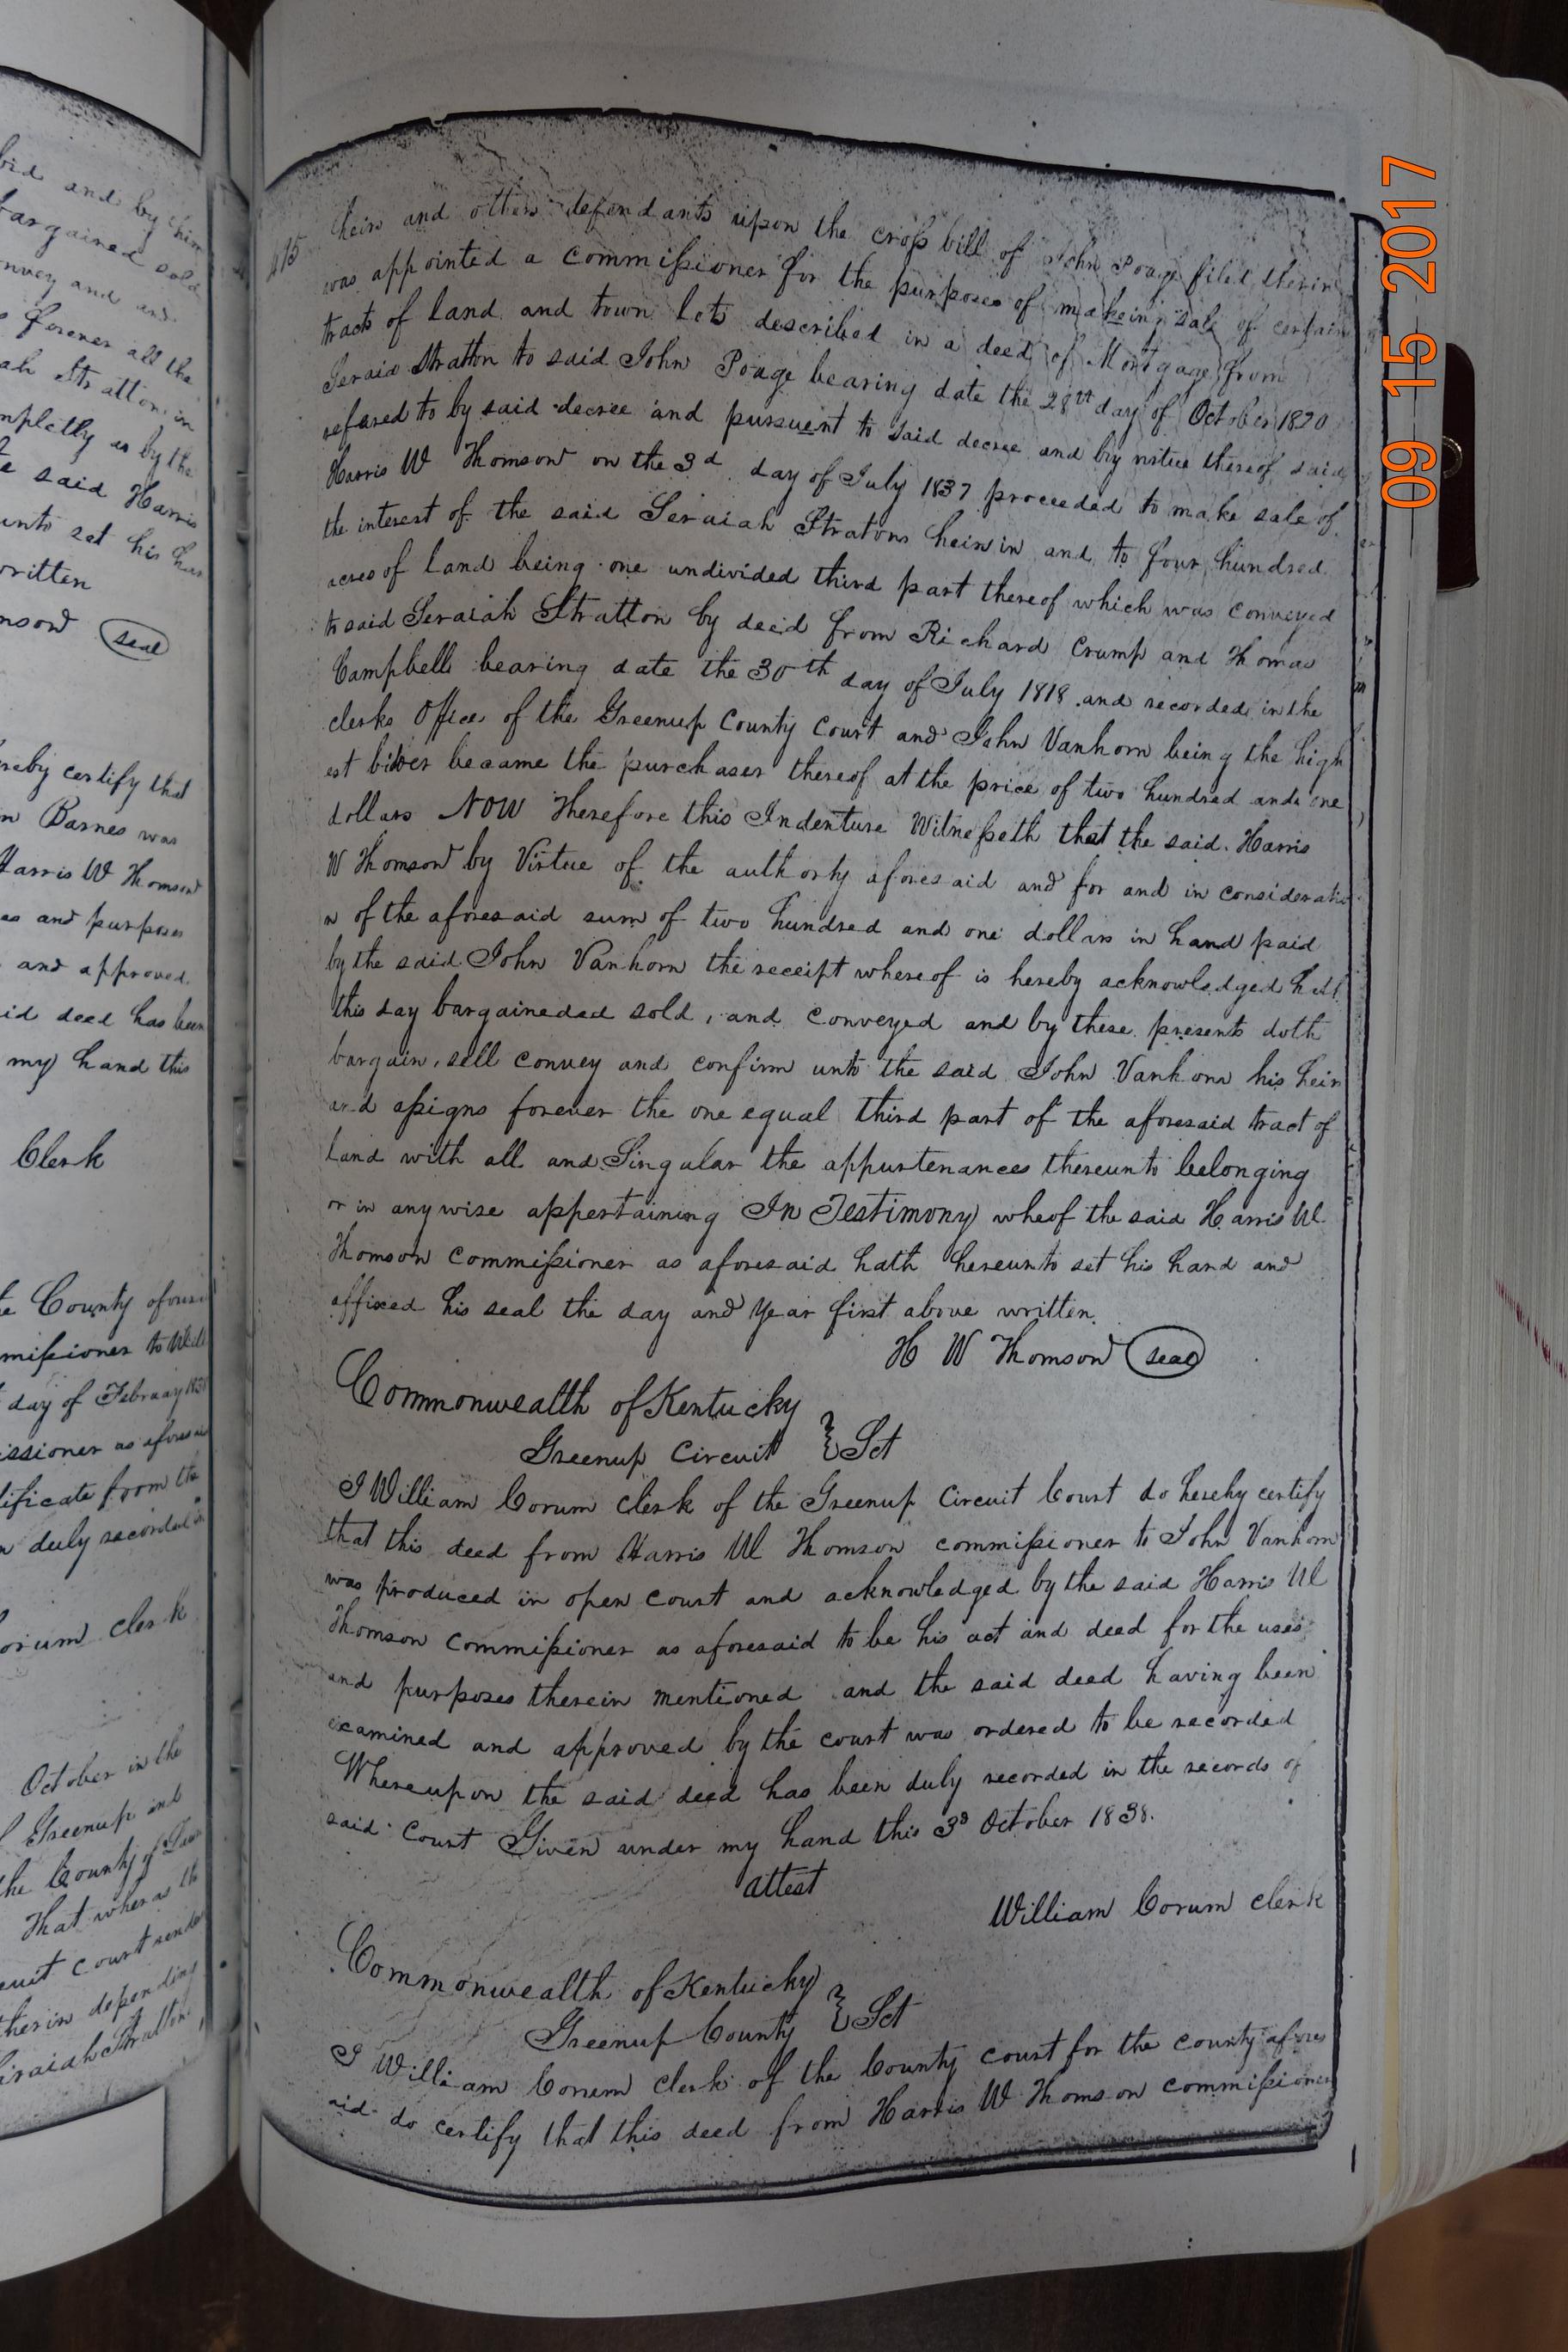 bid and by him
bargained sold
convey and and
forever all the
ah Stratton in
completly as by the
said Harris
unto set his han
written
mson seal
reby certify that
n Barnes was
Harris W Thomson
es and purposes
and approved
id deed has been
my hand this
Clerk
County aforesai
missioner to
day of February
issioner as aforesai
tificate from the
n duly recorded in
orum clerk
October in the
Greenup and
the County of
That wheras th
cuit court rende
therin depending
Siraiah Stratton
415
heirs and others defendants upon the cross bill of John Poage filed therin
was appointed a commissioner for the purposes of makeing sale of certain
tracts of land and town lots described in a deed of Mortgage from
Seraia Stratton to said John Poage bearing date the 28th day of October 1820
refered to by said decree and pursuent to said decree and by virtue thereof said
Harris W Thomson on the 3d day of July 1837 proceeded to make sale of
the interest of the said Seraiah Stratons heirs in and to four hundred
acres of land being one undivided third part thereof which was conveyed
to said Seraiah Stratton by deed from Richard Crump and Thomas
Campbell bearing date the 30th day of July 1818 and recorded in the
clerks Office of the Greenup County Court and John Vanhorn being the high
est bider became the purchaser thereof at the price of two hundred and one
dollars NOW Therefore this Indenture Witnesseth that the said Harris
W Thomson by Virtue of the authorty aforesaid and for and in consideratio
n of the aforesaid sum of two hundred and one dollars in hand paid
by the said John Vanhorn the receipt whereof is hereby acknowledged hath
this day bargaineded sold, and conveyed and by these presents doth
bargain, sell convey and confirm unto the said John Vanhorn his heirs
and assigns forever the one equal third part of the aforesaid tract of
land with all and Singular the appurtenances thereunto belonging
or in any wise appertaining In Testimony wheof the said Harris W
Thomson commissioner as aforesaid hath hereunto set his hand and
affixed his seal the day and Year first above written.
H W Thomson seal
Commonwealth of Kentucky
Greenup Circuit } Sct
I William Corum clerk of the Greenup Circuit Court do hereby certify
that this deed from Harris W Thomson commissioner to John Vanhorn
was produced in open court and acknowledged by the said Harris W
Thomson commissioner as aforesaid to be his act and deed for the uses
and purposes therein mentioned and the said deed having been
examined and approved by the court was ordered to be recorded
Whereupon the said deed has been duly recorded in the records of
said Court Given under my hand this 3d October 1838.
attest
William Corum clerk
Commonwealth of Kentucky
Greenup County } Sct
I William Corum clerk of the County court for the county afores
aid do certify that this deed from Harris W Thomson commissioner
09 15 2017